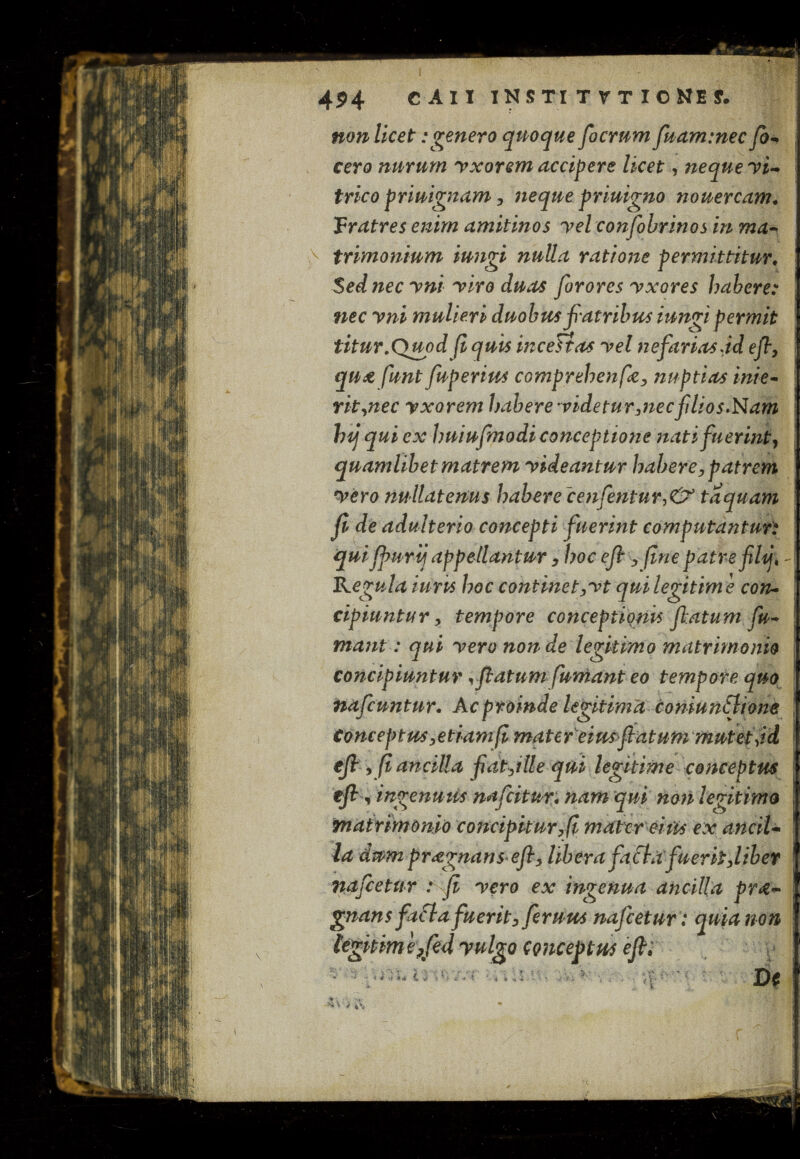 494 CAII INSTITVTIONES.
non licet: genero quoque ſocrum ſuam: nec ſo-
cero nurum vxorem accipere licet, neque vi-
trico priuignam, neque priuigno nouercam.
Fratres enim amitinos vel conſobrinos in ma-
trimonium iungi nulla ratione permittitur.
Sed nec vni viro duas ſorores vxores habere:
nec vni mulieri duobus fratribus iungi permit
titur. Quod ſi quis inceſtas vel nefarias, id eſt,
quæ ſunt ſuperius comprehenſæ, nuptias inie-
rit, nec vxorem habere videtur, nec filios. Nam
hij qui ex huiuſmodi conceptione nati fuerint,
quamlibet matrem videantur habere, patrem
vero nullatenus habere cenſentur, & tãquam
ſi de adulterio concepti fuerint computantur:
qui ſpurij appellantur, hoc eſt, ſine patre filij.
Regula iuris hoc continet, vt qui legitimè con-
cipiuntur, tempore conceptionis ſtatum ſu-
mant: qui vero non de legitimo matrimonio
concipiuntur, ſtatum ſumant eo tempore quo
naſcuntur. Ac proinde legitima coniunctione
conceptus, etiamſi mater eius ſtatum mutet, id
eſt, ſi ancilla fiat, ille qui legitime conceptus
eſt, ingenuus naſcitur. nam qui non legitimo
matrimonio concipitur, ſi mater eius ex ancil-
la dum prægnans eſt, libera facta fuerit, liber
naſcetur: ſi vero ex ingenua ancilla præ-
gnans facta fuerit, ſeruus naſcetur: quia non
legitimè, ſed vulgo conceptus eſt.
De